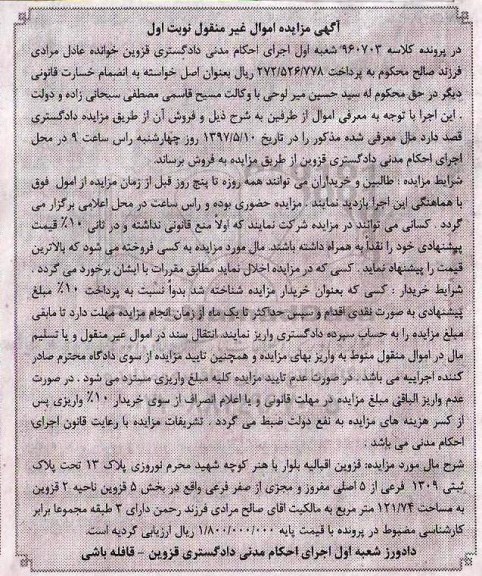 آگهی مزایده اموال غیر منقول نوبت اول
در پرونده کلاسه ۹۶۰۷۰۳ شعبه اول اجرای احکام مدنی دادگستری قزوین خوانده عادل مرادی
فرزند صالح محکوم به پرداخت ۲۷۲/۵۲۶/۷۷۸ ریال بعنوان اصل خواسته به انضمام خسارت قانونی
دیگر در حق محکوم له سید حسین میر لوحی با وکالت مسیح قاسمی مصطفی سبحانی زاده و دولت
. این اجرا با توجه به معرفی اموال از طرفین به شرح ذیل و فروش آن از طریق مزایده دادگستری
قصد دارد مال معرفی شده مذکور را در تاریخ ۱۳۹۷/۵/۱۰ روز چهارشنبه راس ساعت ۹ در محل
اجرای احکام مدنی دادگستری قزوین از طریق مزایده به فروش برساند.
شرایط مزایده : طالبین و خریداران می توانند همه روزه تا پنج روز قبل از زمان مزایده از امول فوق
با هماهنگی این اجرا بازدید نمایند . مزایده حضوری بوده و راس ساعت در محل اعلامی برگزار می
گردد . کسانی می توانند در مزایده شرکت نمایند که اولاً منع قانونی نداشته و در ثانی ۱۰٪ قیمت
پیشنهادی خود را نقداً به همراه داشته باشند. مال مورد مزایده به کسی فروخته می شود که بالاترین
قیمت را پیشنهاد نماید . کسی که در مزایده اخلال نماید مطابق مقررات با ایشان برخورد می گردد .
شرایط خریدار : کسی که بعنوان خریدار مزایده شناخته شد بدواً نسبت به پرداخت ۱۰٪ مبلغ
پیشنهادی به صورت نقدی اقدام و سپس حداکثر تا یک ماه از زمان انجام مزایده مهلت دارد تا مابقی
مبلغ مزایده را به حساب سپرده دادگستری واریز نمایند. انتقال سند در اموال غیر منقول و یا تسلیم
مال در اموال منقول منوط به واریز بهای مزایده و همچنین تایید مزایده از سوی دادگاه محترم صادر
کننده اجراییه می باشد . در صورت عدم تایید مزایده کلیه مبلغ واریزی مسترد می شود . در صورت
عدم واریز الباقی مبلغ مزایده در مهلت قانونی و یا اعلام انصراف از سوی خریدار ۱۰٪ واریزی پس
از کسر هزینه های مزایده به نفع دولت ضبط می گردد . تشریفات مزایده با رعایت قانون اجرای
احکام مدنی می باشد .
شرح مال مورد مزایده: قزوین اقبالیه بلوار با هنر کوچه شهید محرم نوروزی پلاک ۱۳ تحت پلاک
ثبتی ۱۳۰۹ فرعی از ۵ اصلی مفروز و مجزی از صفر فرعی واقع در بخش ۵ قزوین ناحیه ۲ قزوین
به مساحت ۱۲۱/۷۴ متر مربع به مالکیت اقای صالح مرادی فرزند رحمن دارای ۳ طبقه مجموعا برابر
کارشناسی مضبوط در پرونده با قیمت پایه ۱/۸۰۰/۰۰۰/۰۰۰ ریال ارزیابی گردیده است.
دادورز شعبه اول اجرای احکام مدنی دادگستری قزوین - قافله باشی